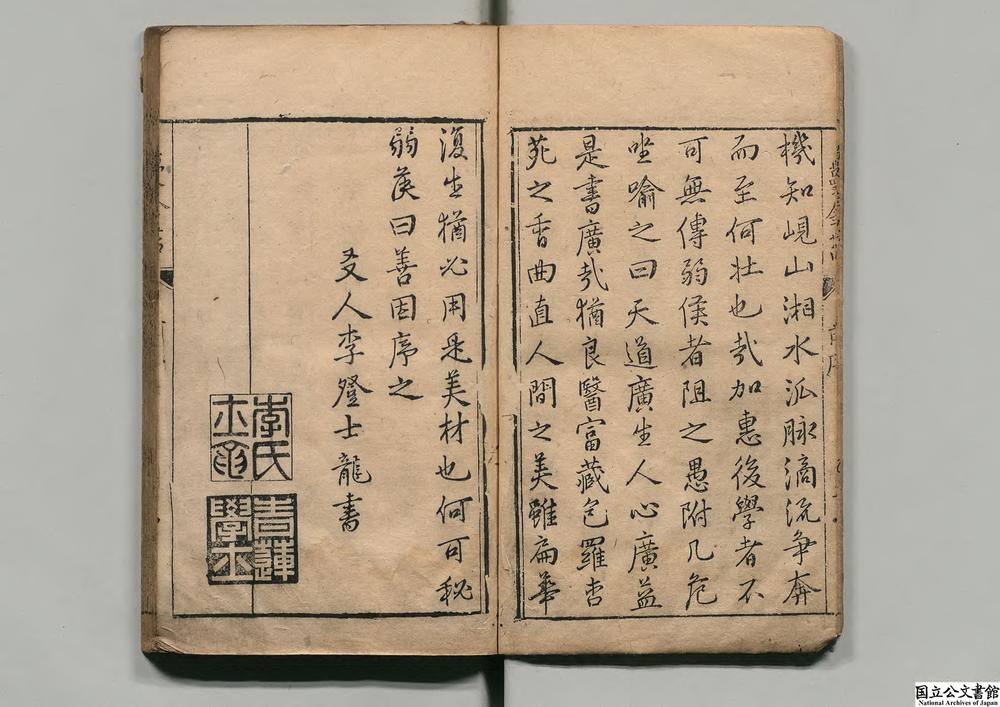 機知峴山湘水泒脉滴流争奔
而至何壯也㢤加惠後學者不
可無傳弱侯者阻之愚附几危
坐喻之曰天道廣生人心廣益
是書廣㢤猶良醫富藏包羅杏
苑之香曲直人間之美雖扁華
復生猶必用是美材也何可秘
弱侯曰善因序之
友人李登士龍書
李氏士龍
青蓮學士
国立公文書館
National Archives of Japan